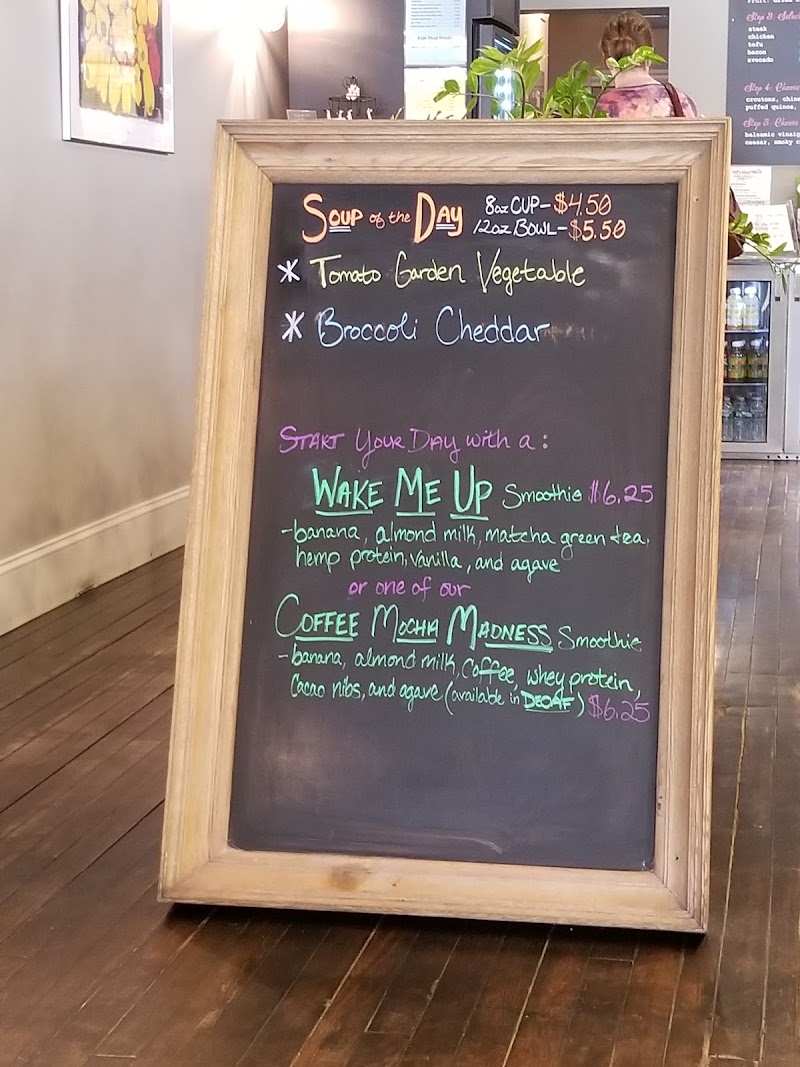 SOUP of the DAY 8oz CUP - $4.50
12oz BOWL - $5.50
* Tomato Garden Vegetable
* Broccoli Cheddar
START YOUR DAY with a:
WAKE ME UP Smoothie $6.25
- banana, almond milk, matcha green tea,
hemp protein, vanilla, and agave
or one of our
COFFEE MOCHA MADNESS Smoothie
- banana, almond milk, coffee, whey protein,
cacao nibs, and agave (available in DECAF) $6.25
steak
chicken
tofu
bacon
avocado
croutons,
puffed quinoa,